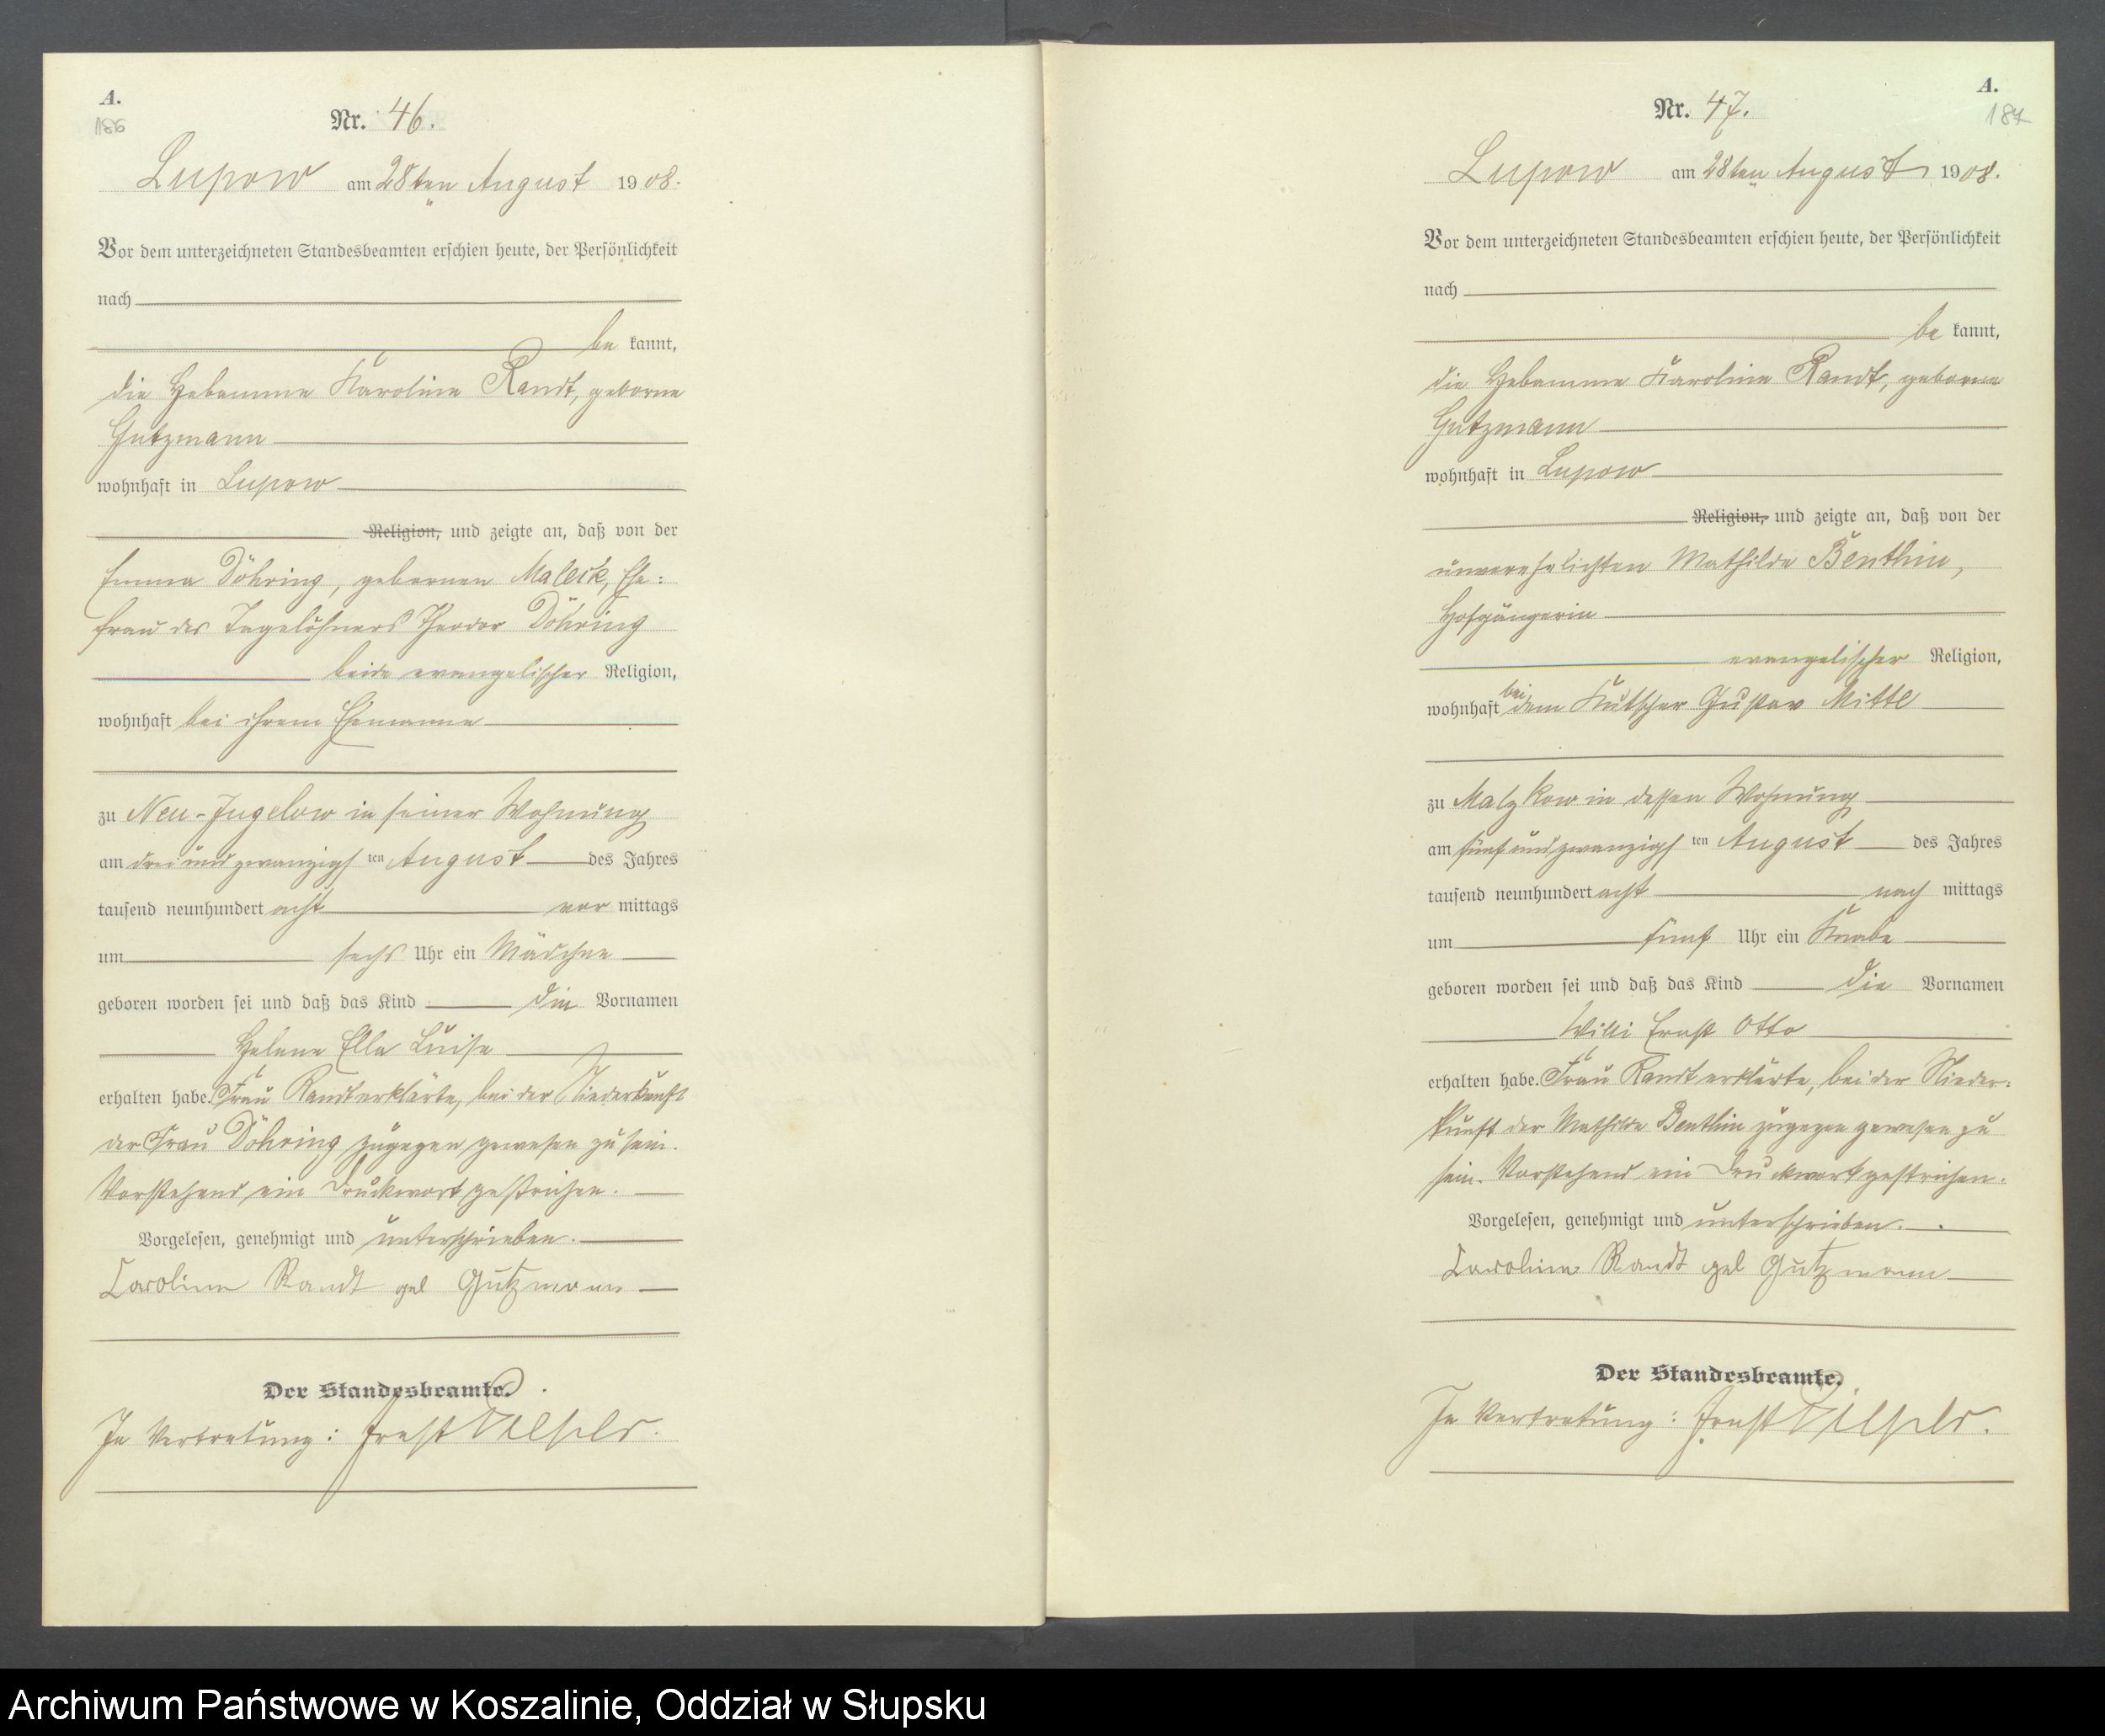 A.
186
Nr. 46.
Lupow am 28ten August 1908.
Vor dem unterzeichneten Standesbeamten erschien heute, der Persönlichkeit
nach
be kannt,
die Hebamme Karoline Randt, geborne
Gutzmann
wohnhaft in Lupow
Religion, und zeigte an, daß von der
Emma Döhring, gebornen Maleik, Ehe:
frau des Tagelöhners Theodor Döhring
beide evangelischer Religion,
wohnhaft bei ihrem Ehemanne
zu Neu-Jugelow in seiner Wohnung
am drei und zwanzigsten August des Jahres
tausend neunhundert acht vor mittags
um sechs Uhr ein Mädchen
geboren worden sei und daß das Kind die Vornamen
Helene Ella Luise
erhalten habe. Frau Randt erklärte, bei der Niederkunft
der Frau Döhring zugegen gewesen zu sein.
Vorstehend ein Druckwort gestrichen.
Vorgelesen, genehmigt und unterschrieben.
Caroline Randt geb Gutzmann
Der Standesbeamte.
In Vertretung: Ernst
A.
187
Nr. 47.
Lupow am 28ten August 1908.
Vor dem unterzeichneten Standesbeamten erschien heute, der Persönlichkeit
nach
be kannt,
die Hebamme Karoline Randt, geborne
Gutzmann
wohnhaft in Lupow
Religion, und zeigte an, daß von der
unverehelichten Mathilde Benthin,
Hofgängerin
evangelischer Religion,
wohnhaft bei dem Kutscher Gustav Mittl
zu Malzkow in dessen Wohnung
am fünf und zwanzigsten August des Jahres
tausend neunhundert acht nach mittags
um fünf Uhr ein Knabe
geboren worden sei und daß das Kind die Vornamen
Willi Ernst Otto
erhalten habe. Frau Randt erklärte, bei der Nieder:
kunft der Mathilde Benthin zugegen gewesen zu
sein. Vorstehend ein Druckwort gestrichen.
Vorgelesen, genehmigt und unterschrieben.
Caroline Randt geb Gutzmann
Der Standesbeamte.
In Vertretung: Ernst
Archiwum Państwowe w Koszalinie, Oddział w Słupsku